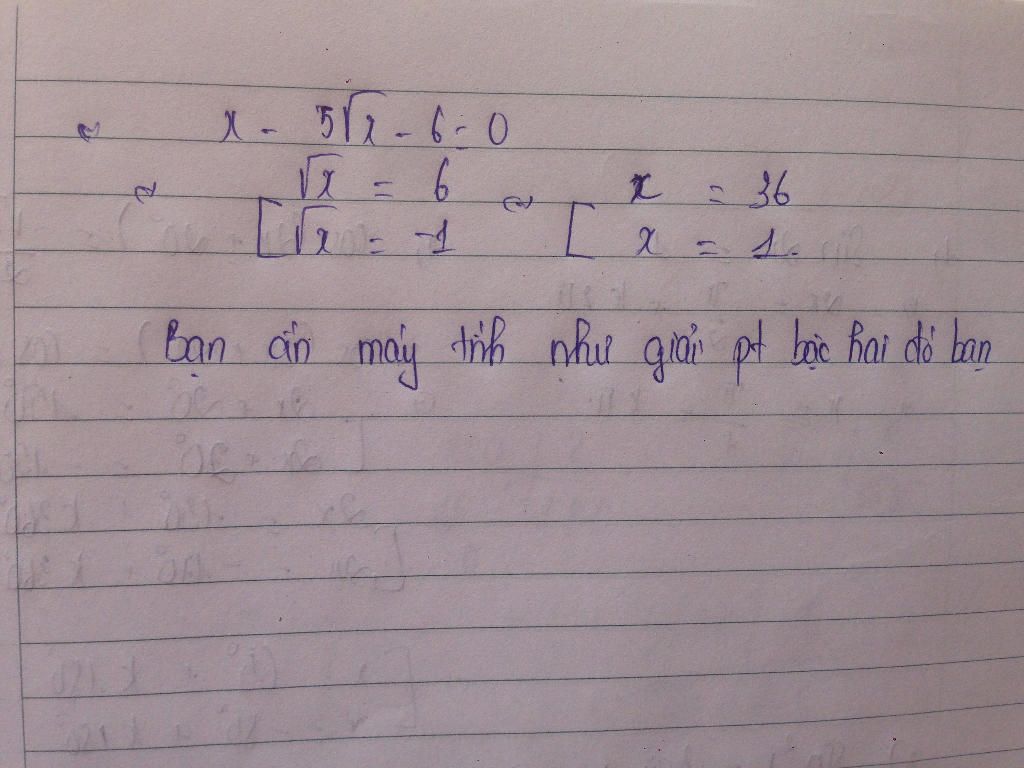 ⇔ x - 5√x - 6 = 0
⇔ [ √x = 6 ⇔ [ x = 36
√x = -1 x = 1.
Bạn ấn máy tính như giải pt bậc hai đó bạn